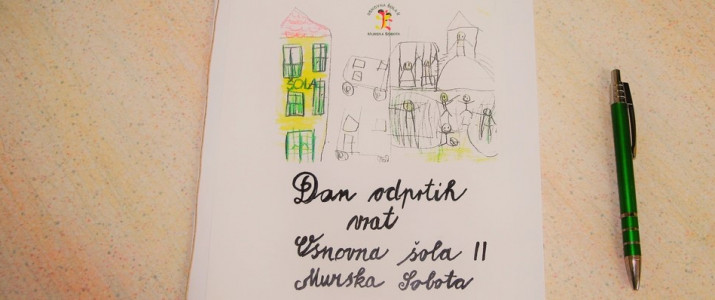 OSNOVNA ŠOLA II
MURSKA SOBOTA
ŠOLA
Dan odprtih
vrat
Osnovna šola II
Murska Sobota